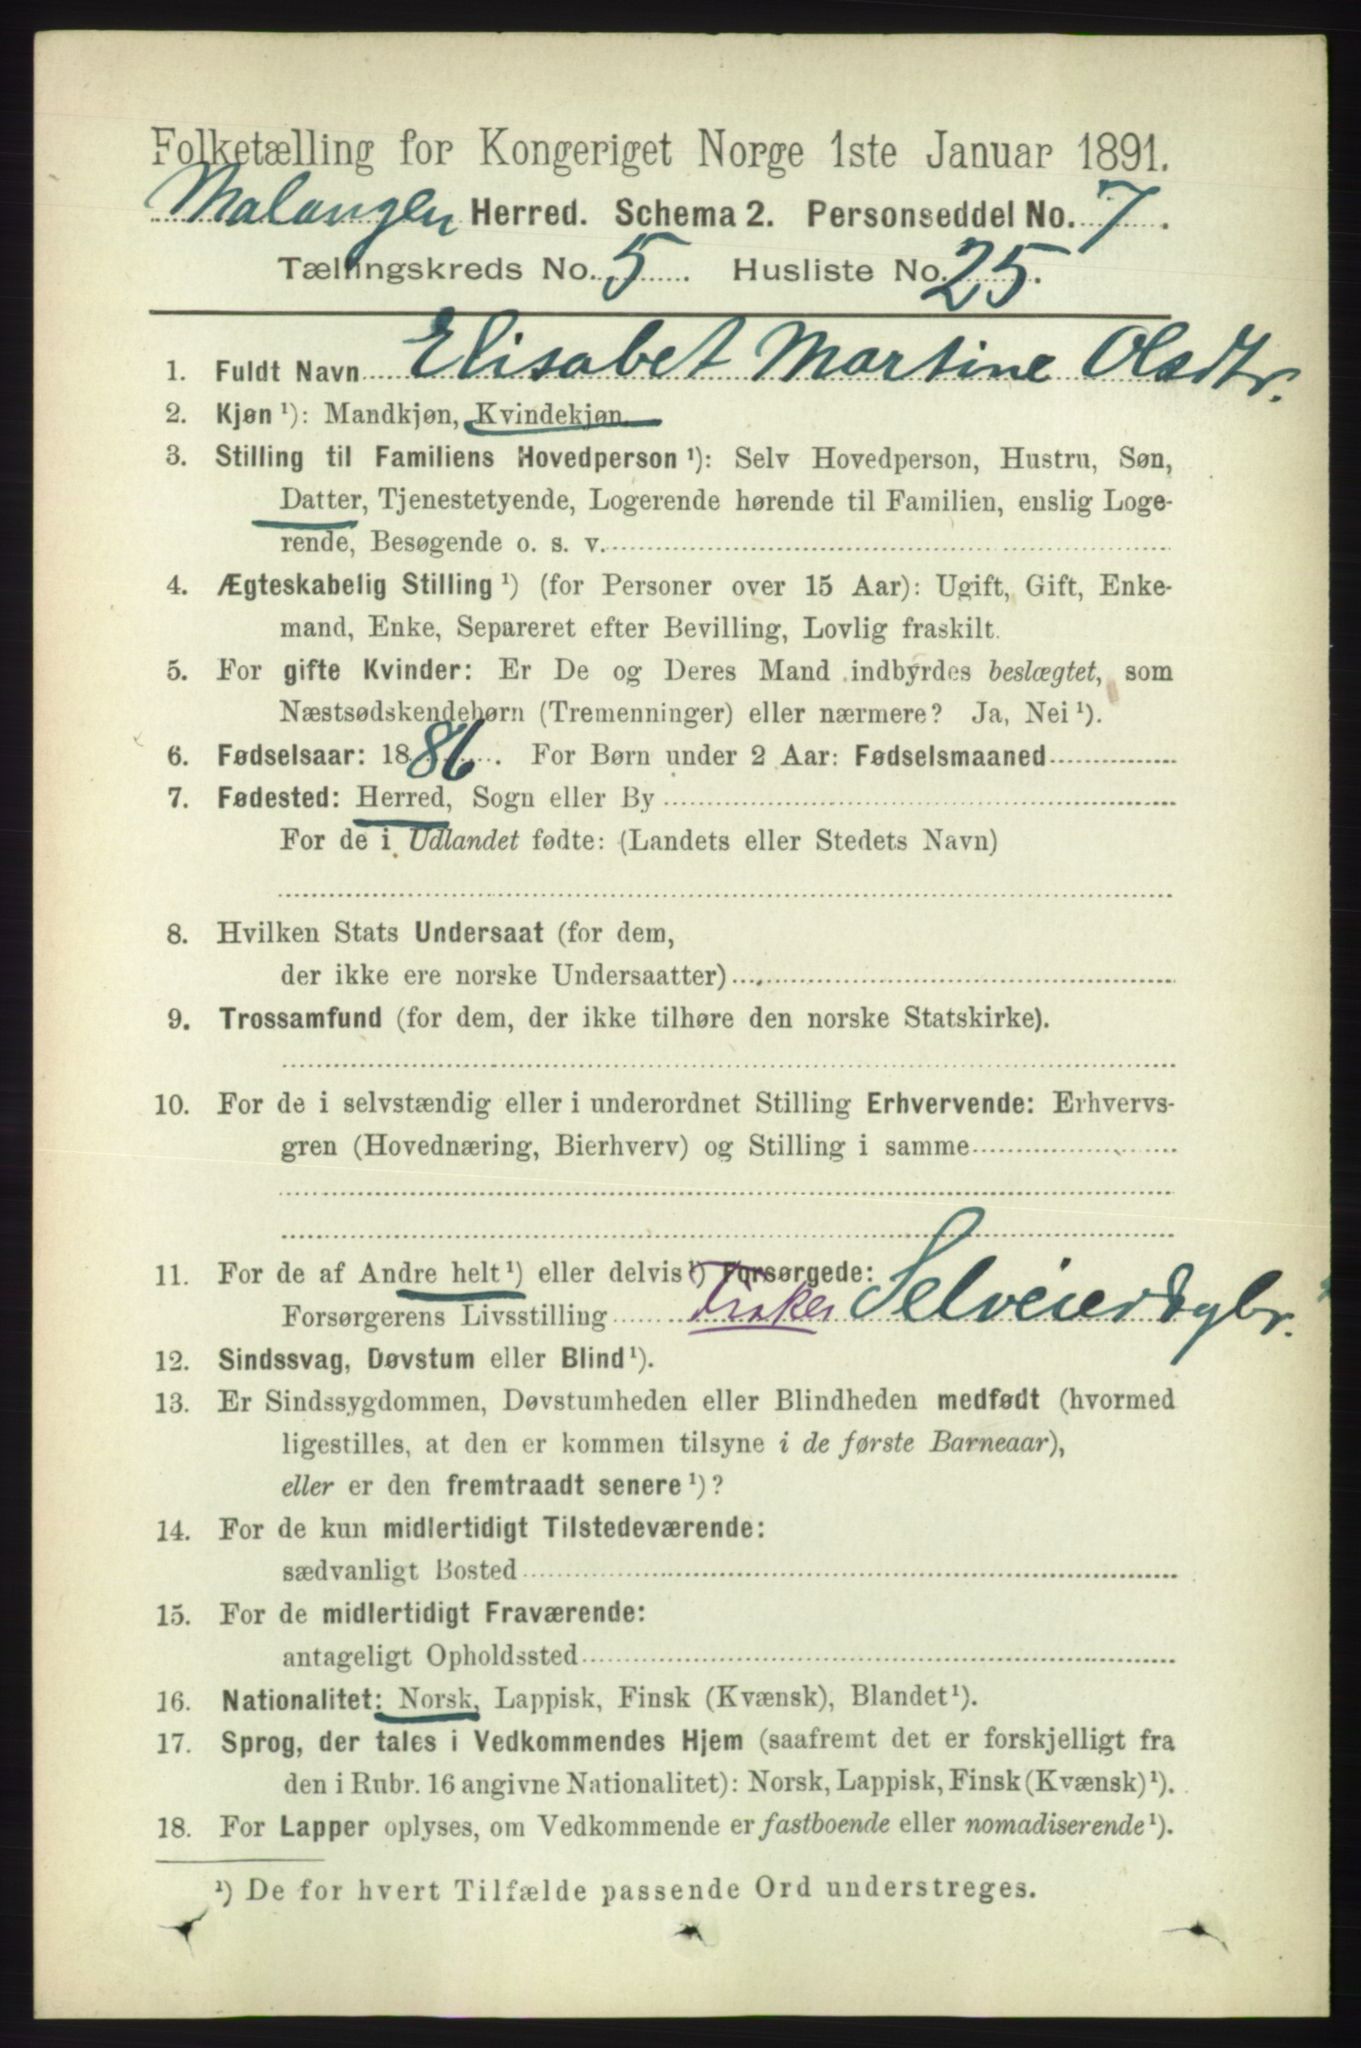 Folketælling for Kongeriget Norge 1ste Januar 1891.
Malangen Herred. Schema 2. Personseddel No. 7.
Tællingskreds No. 5. Husliste No. 25.
1. Fuldt Navn Elisabet Martine Olsdtr.
2. Kjøn ¹): Mandkjøn, Kvindekjøn.
3. Stilling til Familiens Hovedperson ¹): Selv Hovedperson, Hustru, Søn,
Datter, Tjenestetyende, Logerende hørende til Familien, enslig Loge-
rende, Besøgende o. s. v.
4. Ægteskabelig Stilling ¹) (for Personer over 15 Aar): Ugift, Gift, Enke-
mand, Enke, Separeret efter Bevilling, Lovlig fraskilt.
5. For gifte Kvinder: Er De og Deres Mand indbyrdes beslægtet, som
Næstsødskendebørn (Tremenninger) eller nærmere? Ja, Nei ¹).
6. Fødselsaar: 1886. For Børn under 2 Aar: Fødselsmaaned
7. Fødested: Herred, Sogn eller By
For de i Udlandet fødte: (Landets eller Stedets Navn)
8. Hvilken Stats Undersaat (for dem,
der ikke ere norske Undersaatter)
9. Trossamfund (for dem, der ikke tilhøre den norske Statskirke).
10. For de i selvstændig eller i underordnet Stilling Erhvervende: Erhvervs-
gren (Hovednæring, Bierhverv) og Stilling i samme
11. For de af Andre helt ¹) eller delvis ¹) Forsørgede:
Forsørgerens Livsstilling Fisker Selveierdygbr.
12. Sindssvag, Døvstum eller Blind ¹).
13. Er Sindssygdommen, Døvstumheden eller Blindheden medfødt (hvormed
ligestilles, at den er kommen tilsyne i de første Barneaar),
eller er den fremtraadt senere ¹)?
14. For de kun midlertidigt Tilstedeværende:
sædvanligt Bosted
15. For de midlertidigt Fraværende:
antageligt Opholdssted
16. Nationalitet: Norsk, Lappisk, Finsk (Kvænsk), Blandet ¹).
17. Sprog, der tales i Vedkommendes Hjem (saafremt det er forskjelligt fra
den i Rubr. 16 angivne Nationalitet): Norsk, Lappisk, Finsk (Kvænsk) ¹).
18. For Lapper oplyses, om Vedkommende er fastboende eller nomadiserende ¹).
¹) De for hvert Tilfælde passende Ord understreges.